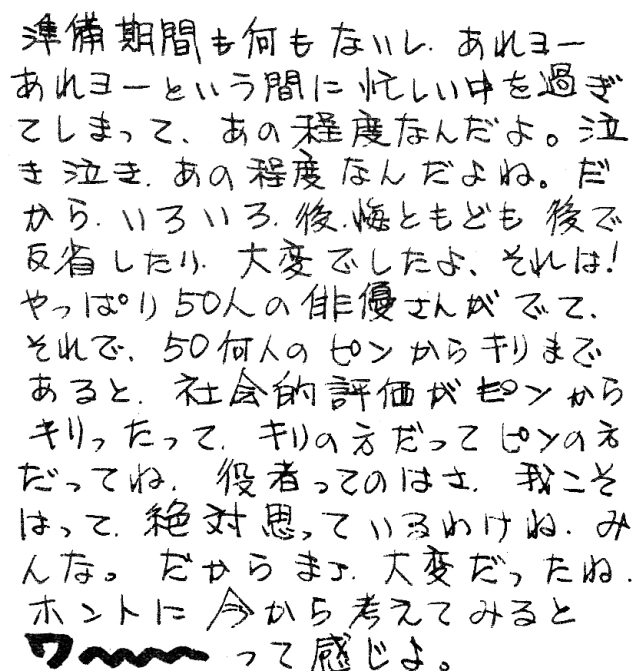 準備期間も何もないし、あれヨー
あれヨーという間に忙しい中を過ぎ
てしまって、あの程度なんだよ。泣
き泣き、あの程度なんだよね。だ
から、いろいろ、後悔ともども後で
反省したり、大変でしたよ、それは!
やっぱり50人の俳優さんがでて、
それで、50何人のピンからキリまで
あると、社会的評価がピンから
キリったって、キリの方だってピンの方
だってね、役者ってのはさ、我こそ
はって、絶対思っているわけね、み
んな。だからまァ、大変だったね、
ホントに今から考えてみると
ワ〜〜〜って感じよ。